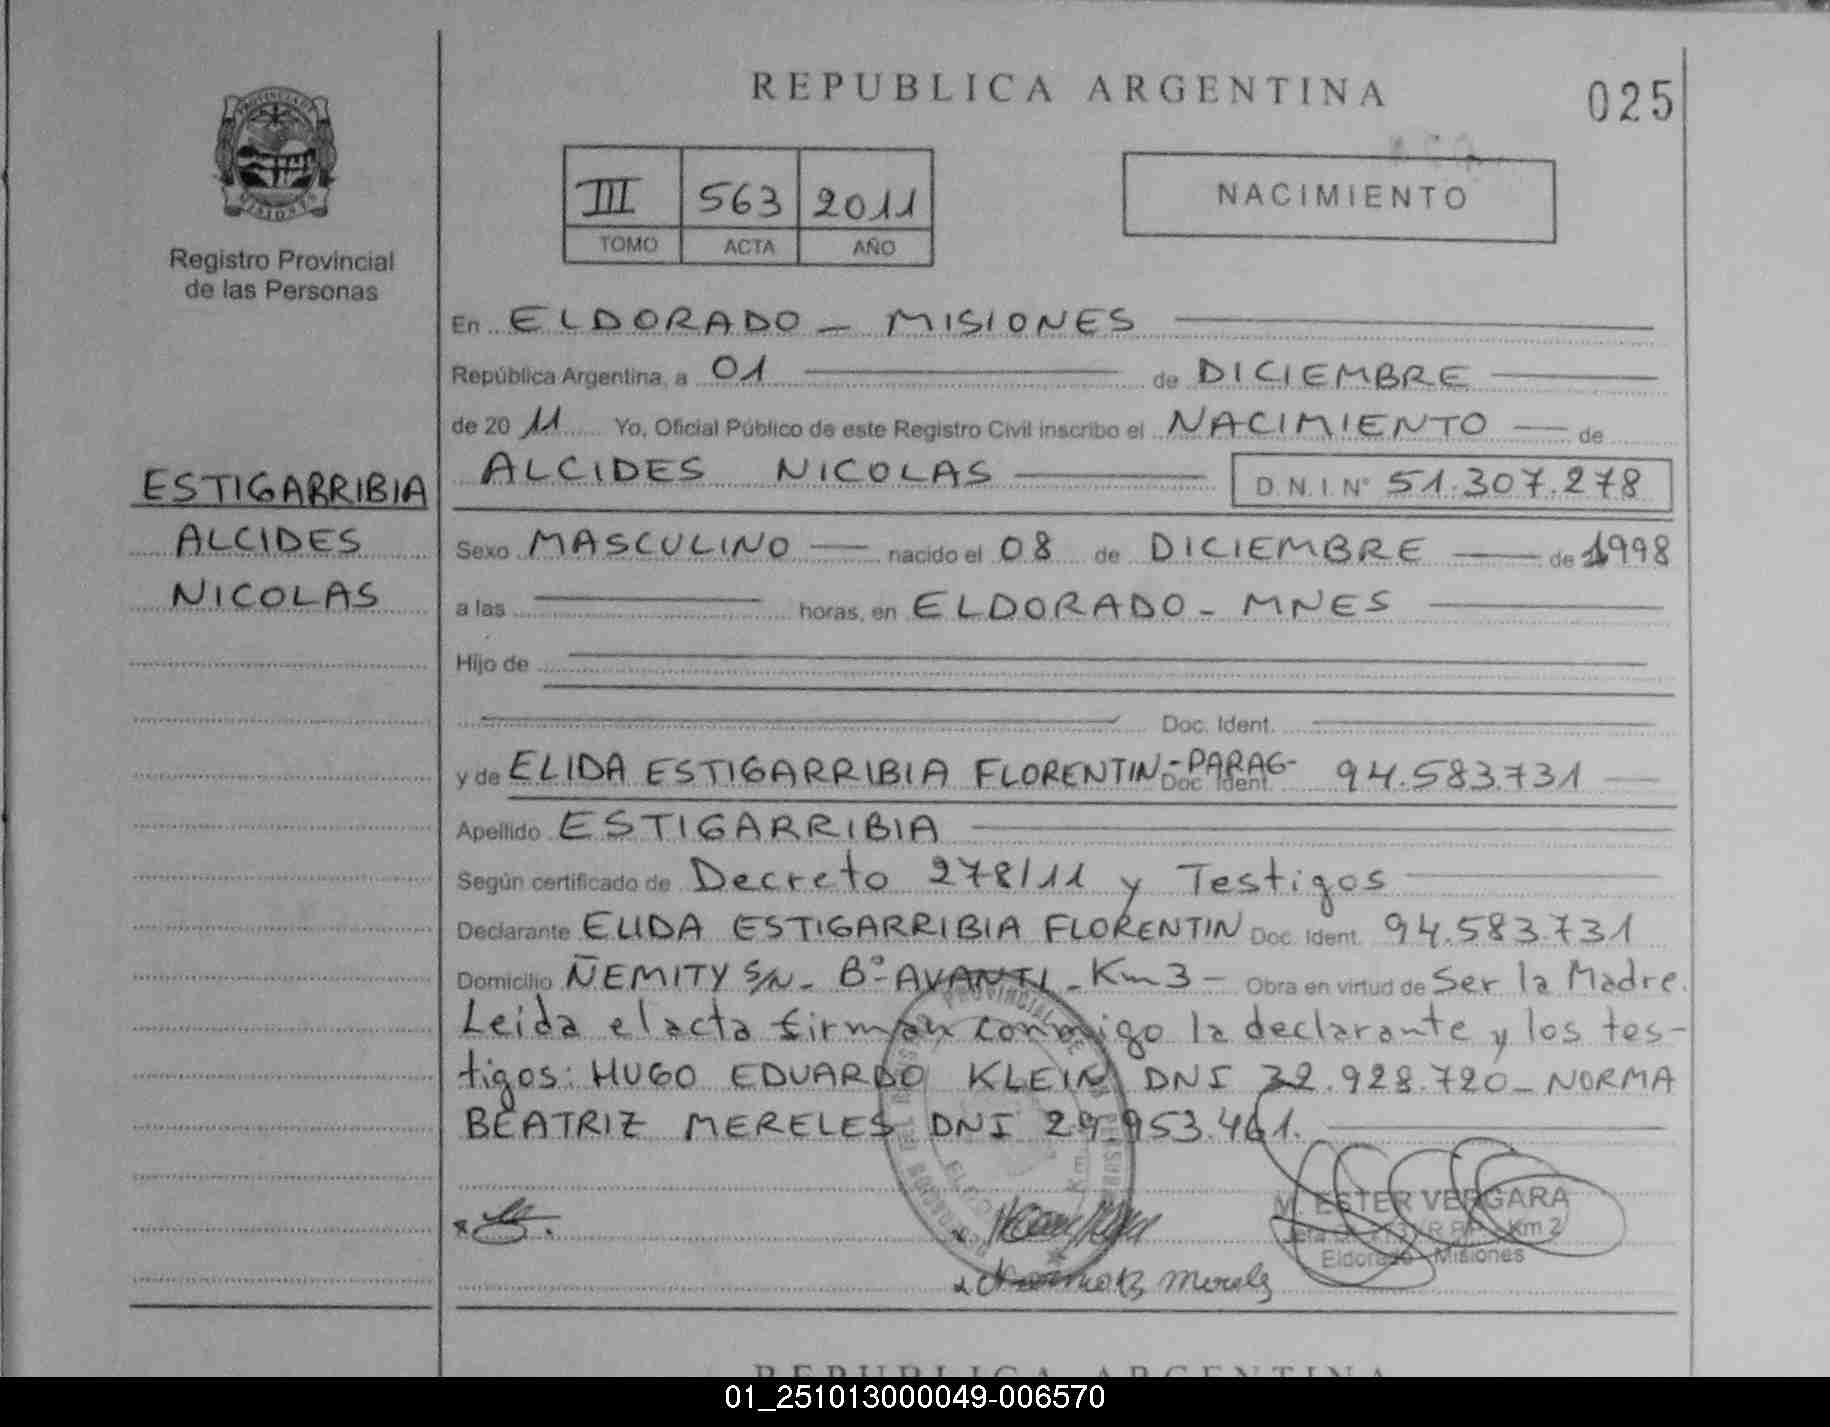 REPUBLICA ARGENTINA
025
III 563 2011
TOMO ACTA AÑO
NACIMIENTO
Registro Provincial
de las Personas
ESTIGARRIBIA
ALCIDES
NICOLAS
En ELDORADO - MISIONES
República Argentina, a 01 de DICIEMBRE
de 2011 Yo, Oficial Público de este Registro Civil inscribo el NACIMIENTO de
ALCIDES NICOLAS D.N.I. Nº 51.307.278
Sexo MASCULINO nacido el 08 de DICIEMBRE de 1998
a las horas, en ELDORADO - MNES
Hijo de
Doc. Ident.
y de ELIDA ESTIGARRIBIA FLORENTIN - PARAG - Doc. Ident. 94.583.731
Apellido ESTIGARRIBIA
Según certificado de Decreto 278/11 y Testigos
Declarante ELIDA ESTIGARRIBIA FLORENTIN Doc. Ident. 94.583.731
Domicilio ÑEMITY S/N - Bº AVANTI - Km 3 - Obra en virtud de Ser la Madre.
Leida el acta firman conmigo la declarante y los tes-
tigos: HUGO EDUARDO KLEIN DNI 32.928.720 - NORMA
BEATRIZ MERELES DNI 29.953.461.
M. ESTER VERGARA
Km 2
Eldorado Misiones
REPUBLICA ARGENTINA
01_251013000049-006570